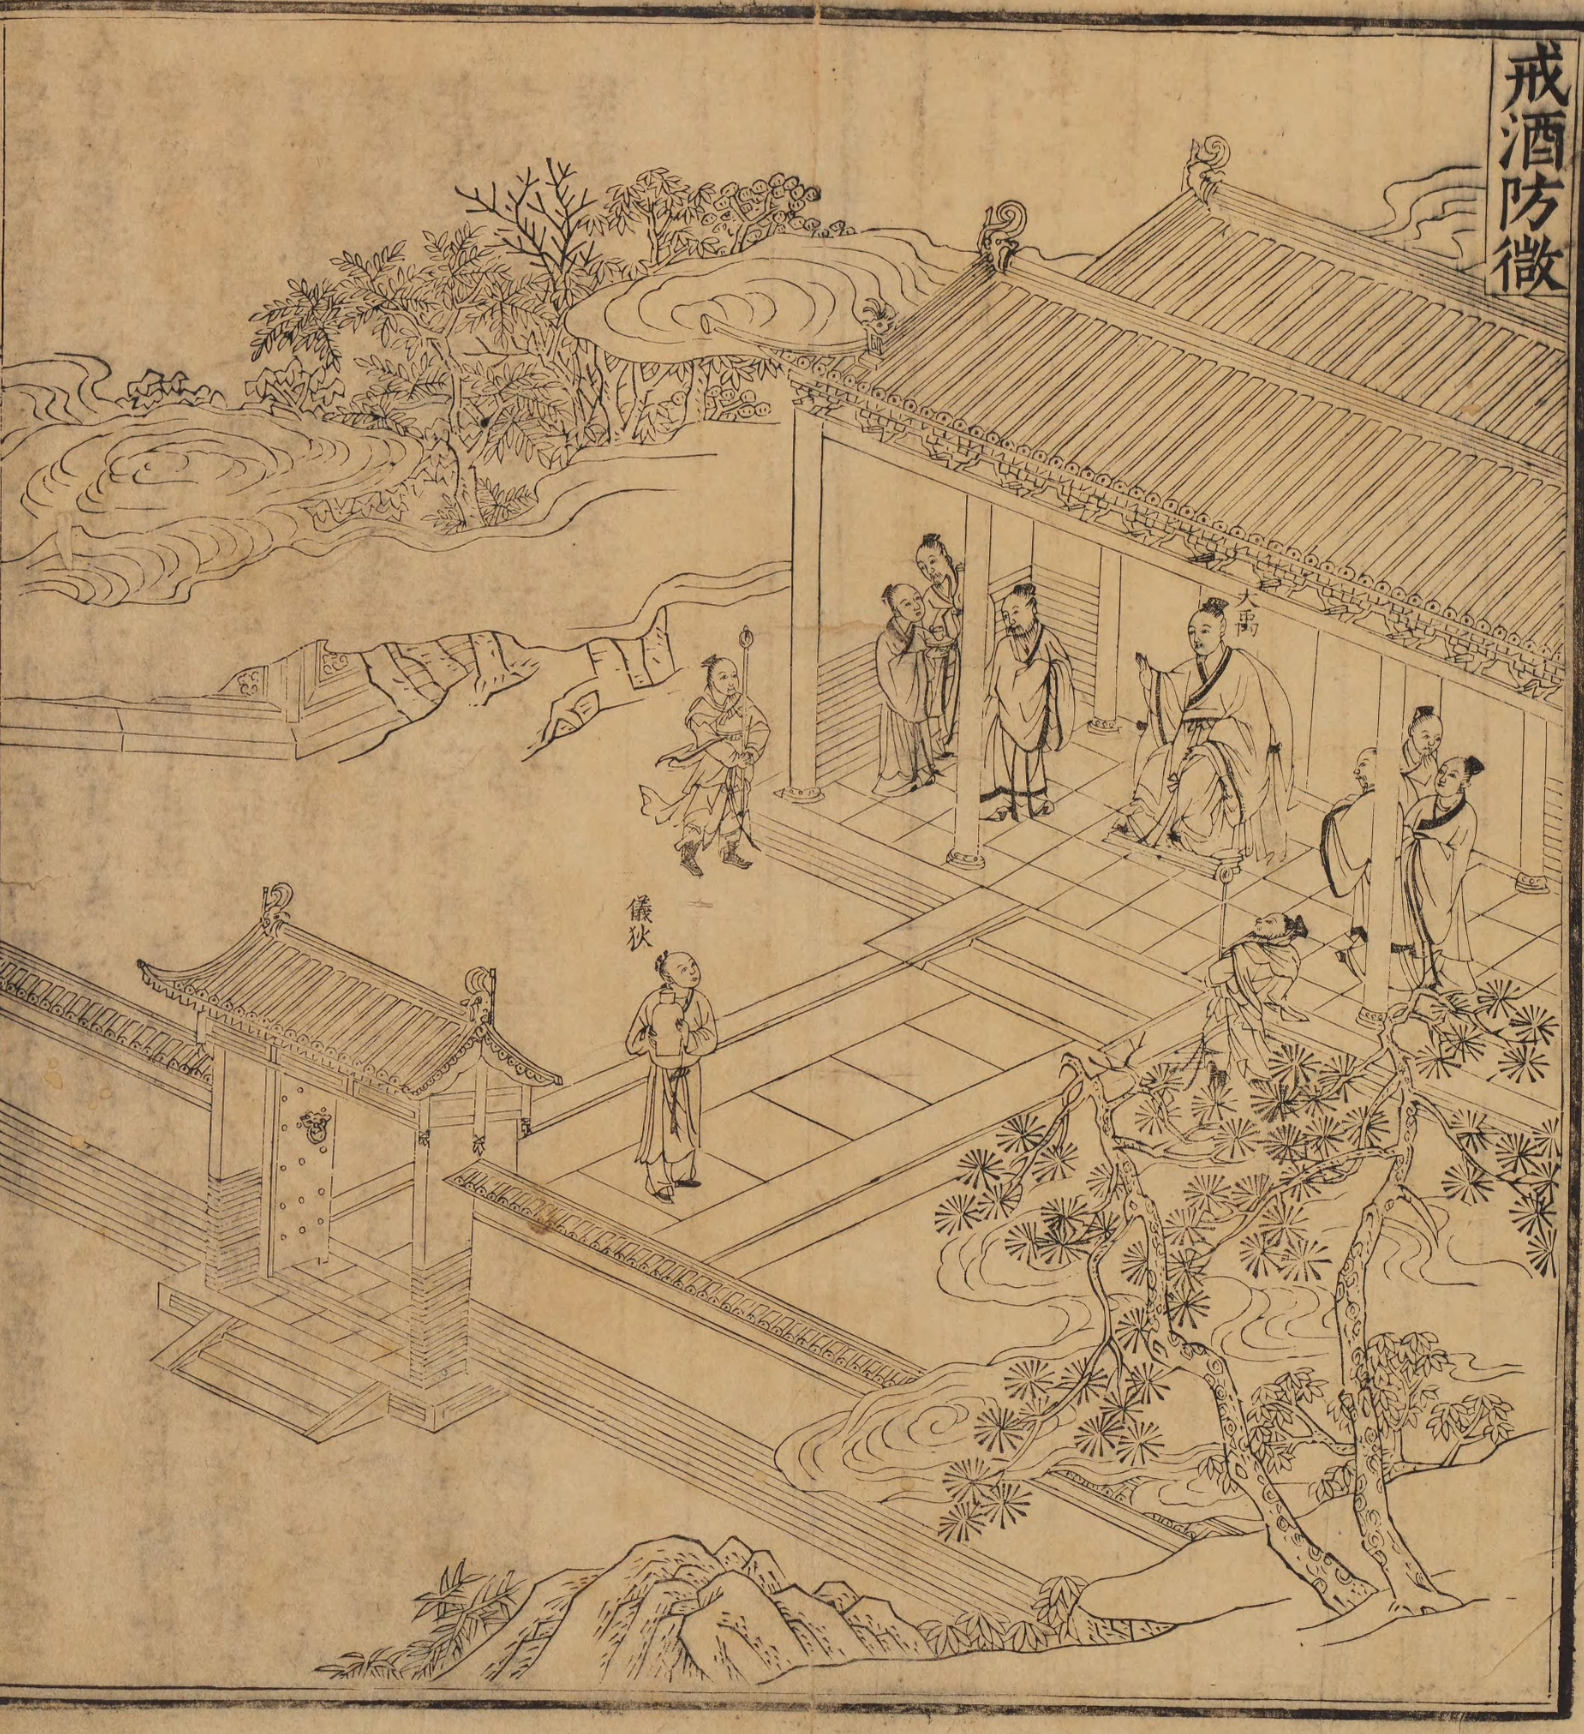 戒酒防微
大禹
儀狄